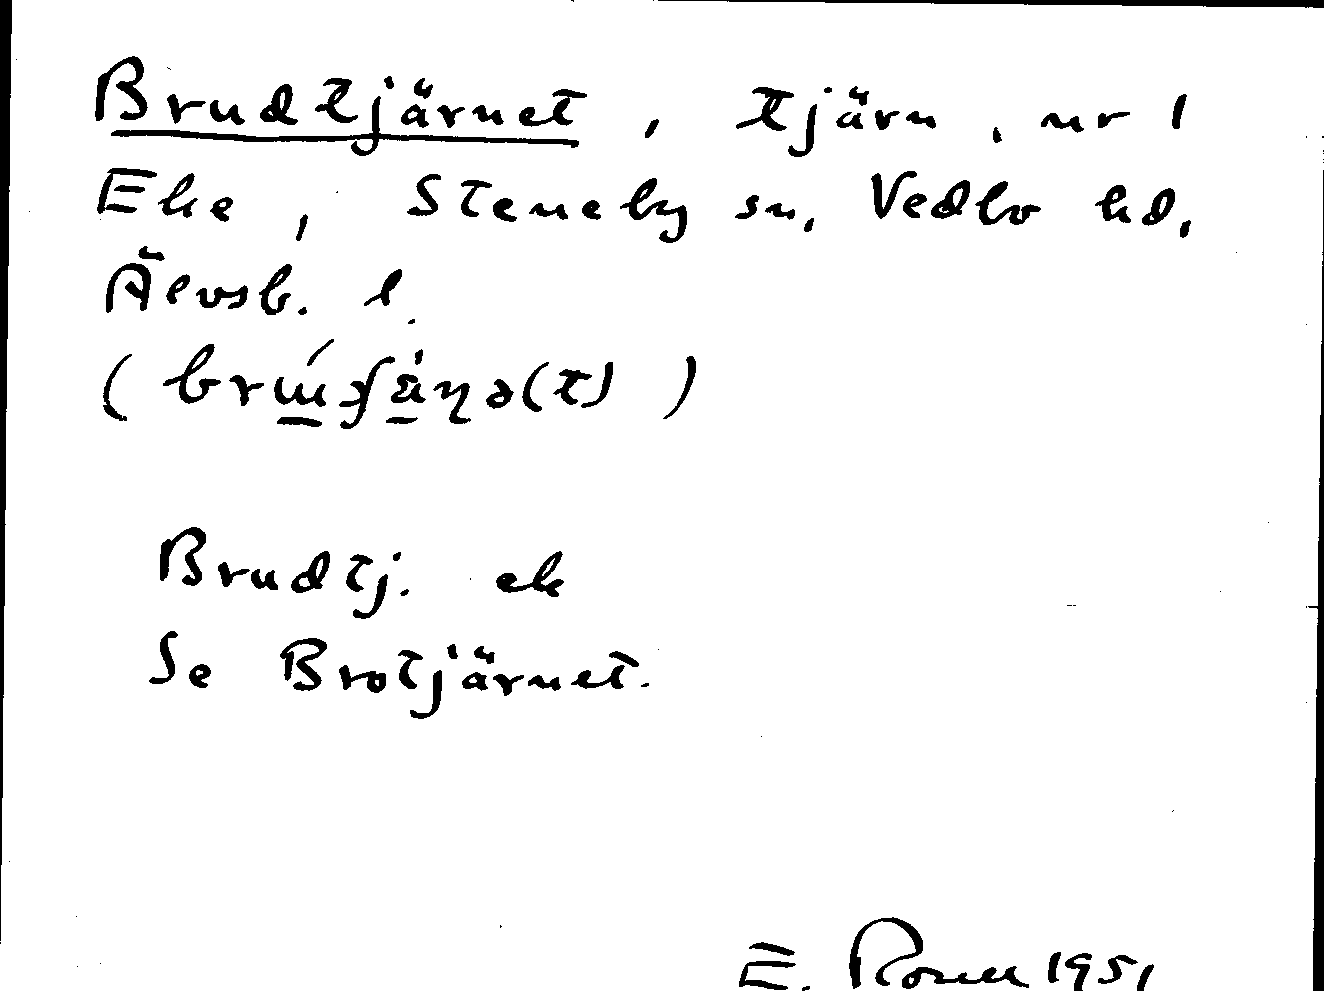 Brudtjärnet, tjärn, nr 1
Eke, Steneby sn, Vedbo hd,
Älvsb. l.
Brudtj. ek
Se Brotjärnet.
E. 1951